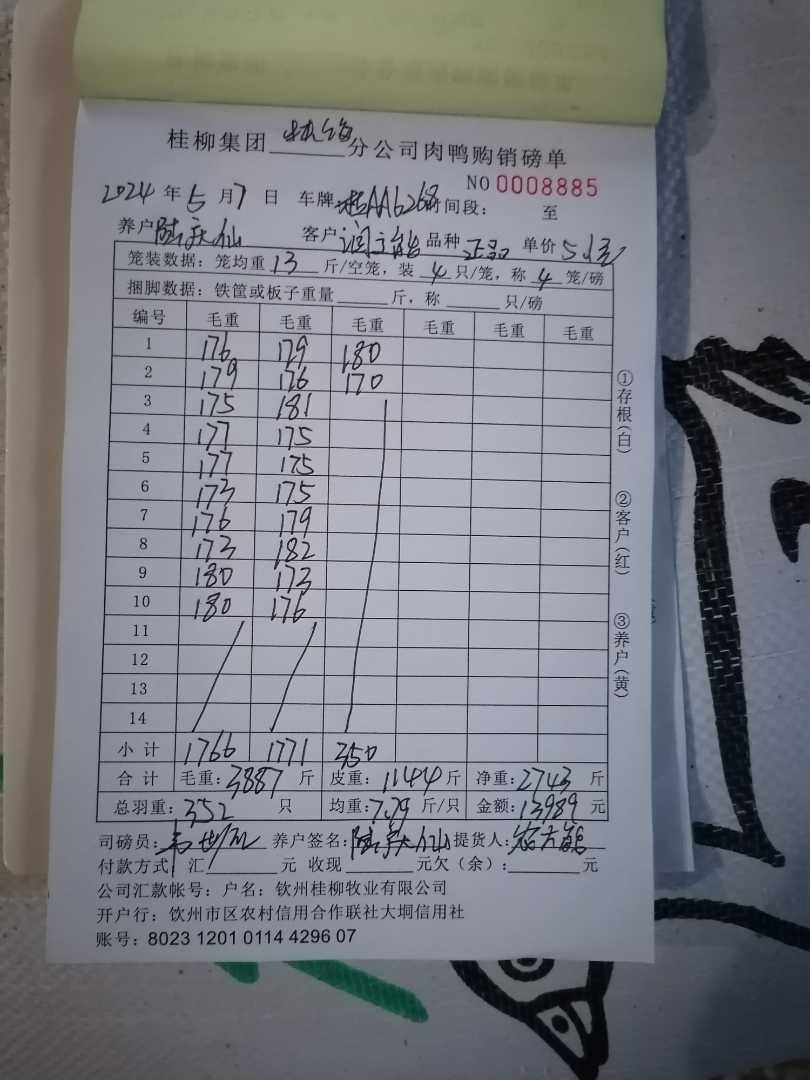 桂柳集团 分公司肉鸭购销磅单
NO 0008885
2024 年 5 月 7 日 车牌 桂AA6268 时间段： 至
养户 陆 仙 客户 品种 正品 单价 5.1元
笼装数据：笼均重 13 斤/空笼，装 4 只/笼，称 4 笼/磅
捆脚数据：铁筐或板子重量 斤，称 只/磅
编号 毛重 毛重 毛重 毛重 毛重 毛重
1 176 179 180
2 179 176 170
3 175 181
4 177 175
5 177 175
6 173 175
7 176 179
8 173 182
9 180 173
10 180 176
11
12
13
14
小 计 1766 1771 350
合 计 毛重：3887 斤 皮重：1144 斤 净重：2743 斤
总羽重：352 只 均重：7.79 斤/只 金额：13989 元
司磅员： 养户签名：陆 仙 提货人：
付款方式 汇 元 收现 元欠（余）： 元
公司汇款帐号：户名：钦州桂柳牧业有限公司
开户行：钦州市区农村信用合作联社大垌信用社
账号：8023 1201 0114 4296 07
①存根（白） ②客户（红） ③养户（黄）